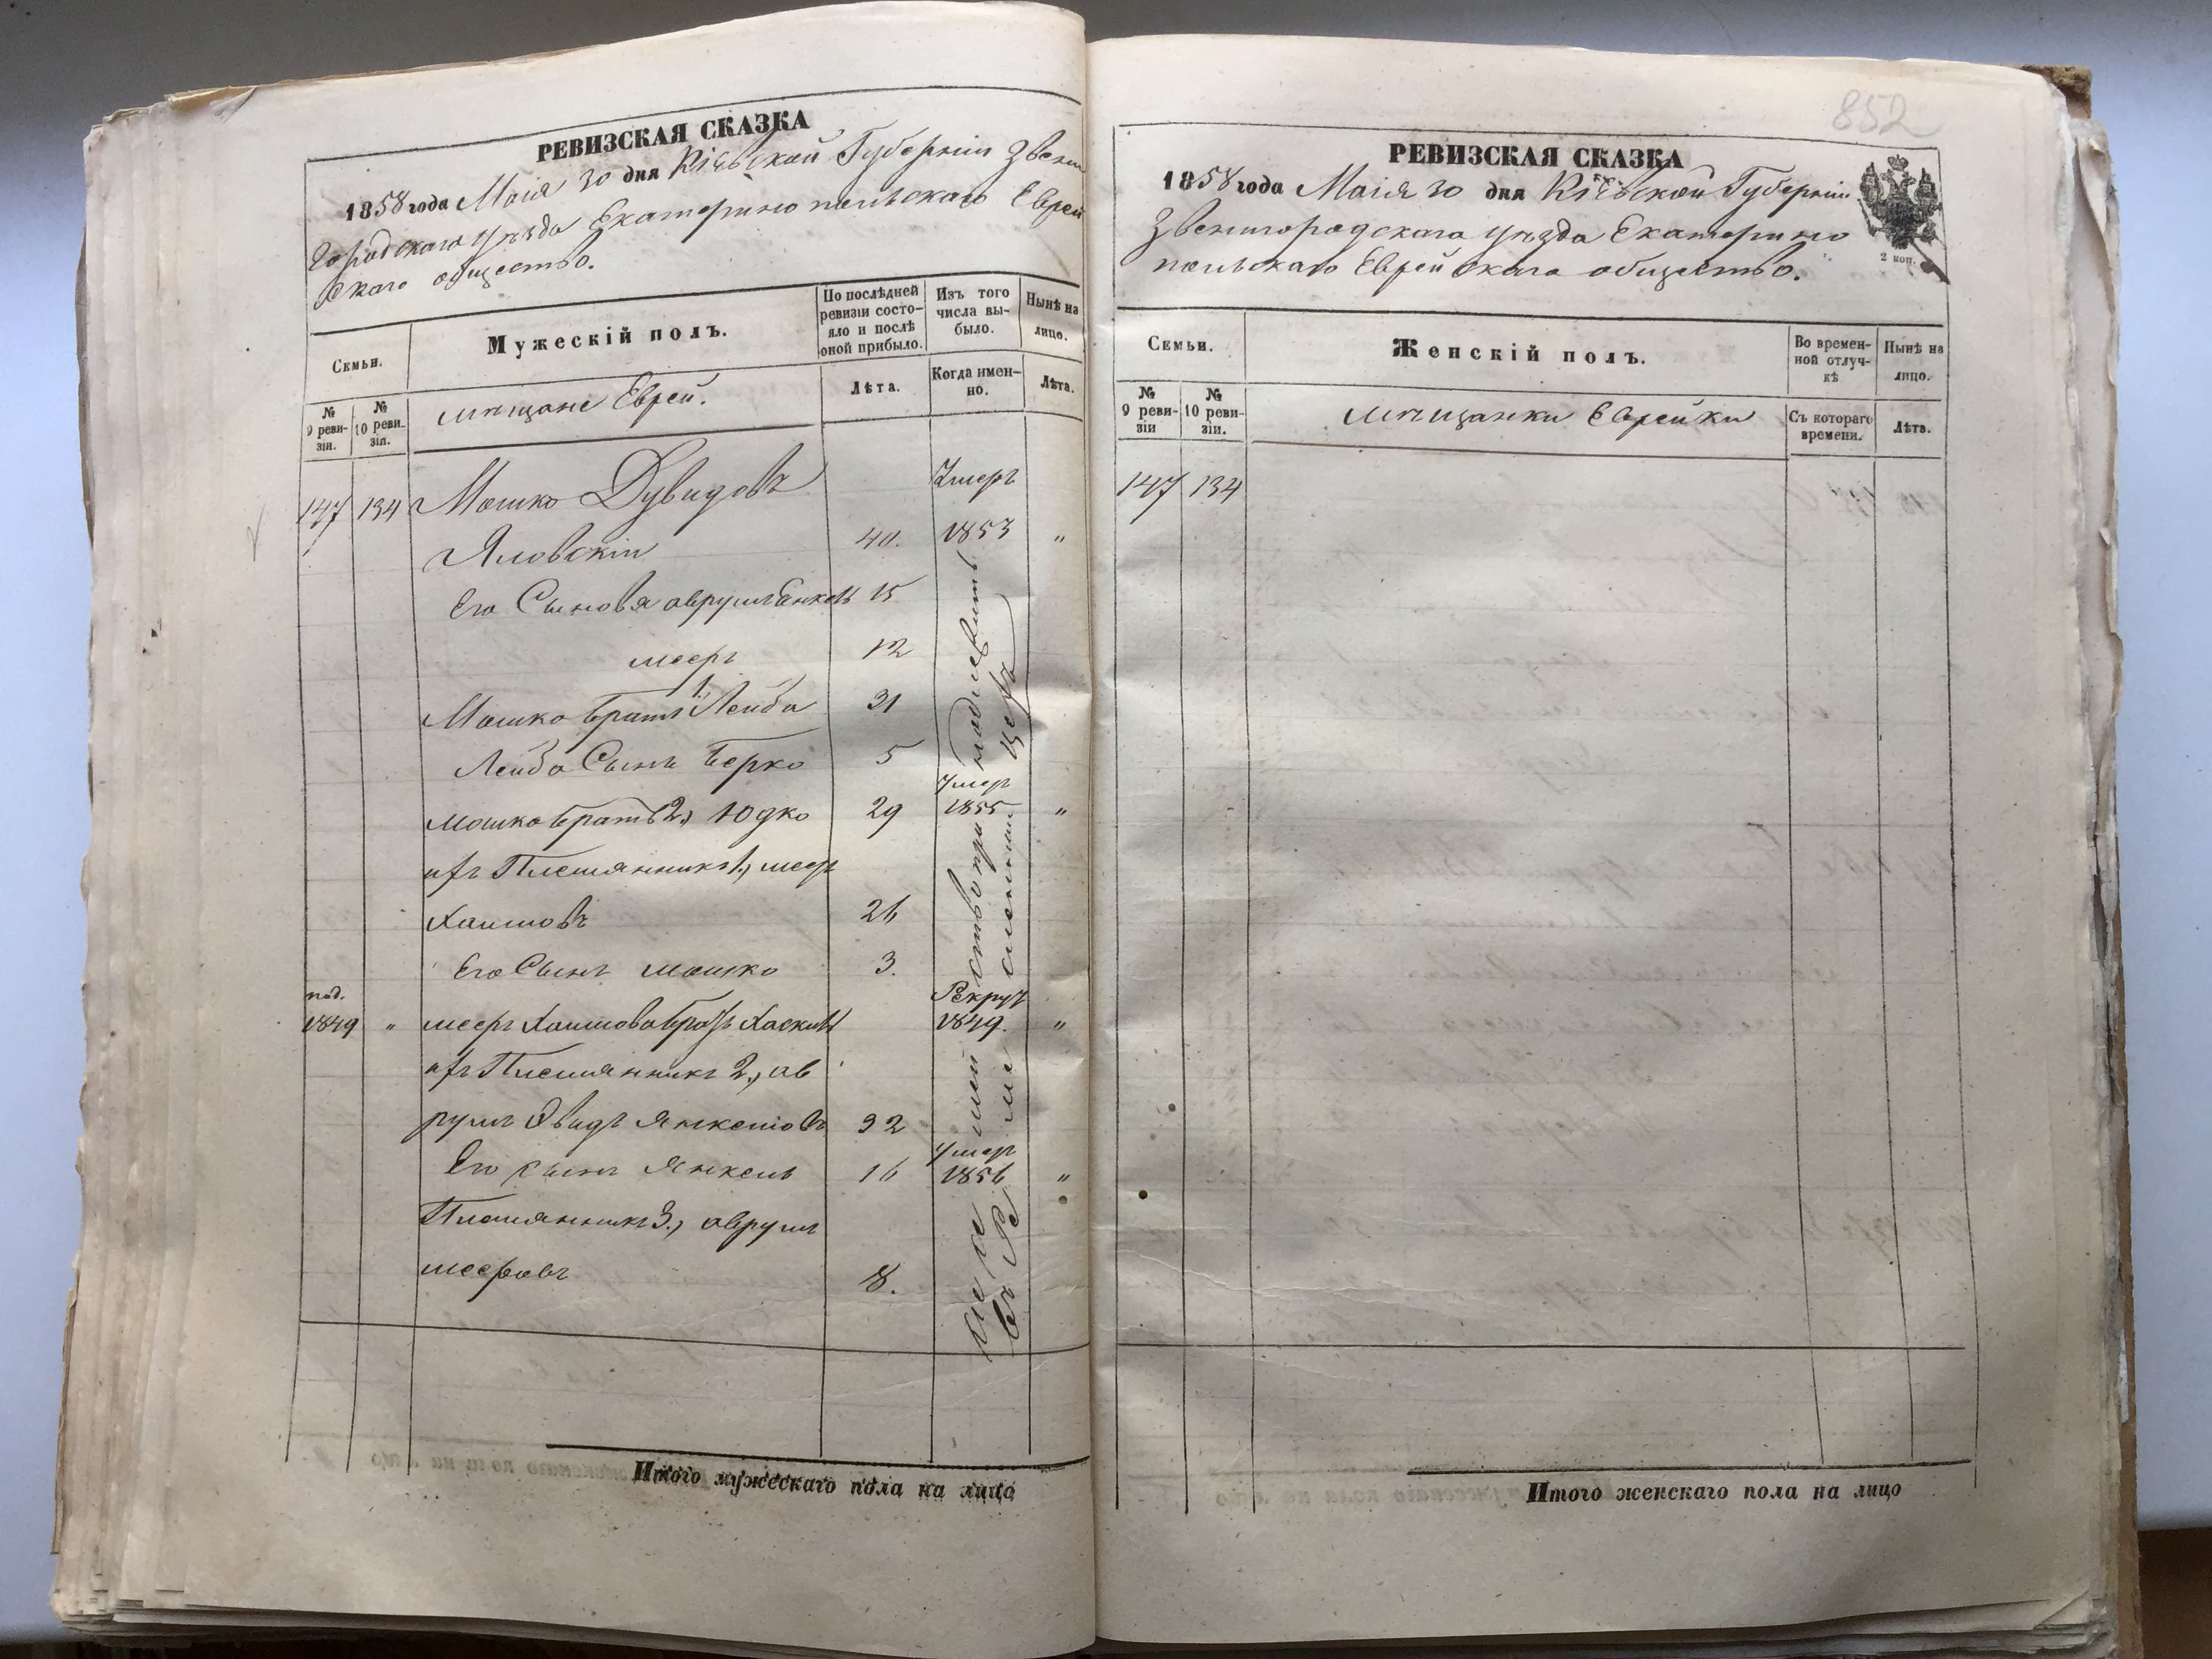 РЕВИЗСКАЯ СКАЗКА
1858 года Маія 30 дня Кіевской Губерніи Звени
городскаго уѣзда Екатеринопольскаго Еврей
скаго общество.
Семьи.
Мужескій полъ.
По послѣдней ревизіи состояло и послѣ оной прибыло.
Изъ того числа выбыло.
Нынѣ на лицо.
№ 9 ревизіи.
№ 10 ревизіи.
мѣщане Еврей.
Лѣта.
Когда именно.
Лѣта.
147 134 Мошко Дувидовъ Умеръ
Яловскій 40. 1853 "
Его Сыновя аврумъ Янкель 15
мееръ 12
Мошко братъ 1., Лейба 31
Лейба Сынъ Берко 5
мошко братъ 2., Юдко 29 Умеръ 1855 "
ихъ Племянникъ 1., меер
Хаимовъ 26
Его Сынъ мошко 3.
1849 " мееръ Хаимова братъ Хаскель Рекрут 1849. "
ихъ Племянникъ 2., ав
румъ Двидъ Янкелювъ 32
Его сынъ Янкель 16 Умеръ 1856 "
Племянникъ 3., аврум
мееровъ 8.
Итого мужескаго пола на лицо
852
РЕВИЗСКАЯ СКАЗКА
1858 года Маія 30 дня Кіевской Губерніи
Звенигородскаго уѣзда Екатерино
польскаго Еврейскаго общество.
2 коп.
Семьи.
Женскій полъ.
Во временной отлучкѣ
Нынѣ на лицо.
№ 9 ревизіи
№ 10 ревизіи.
мѣщанки Еврейки
Съ котораго времени.
Лѣта.
147 134
Итого женскаго пола на лицо